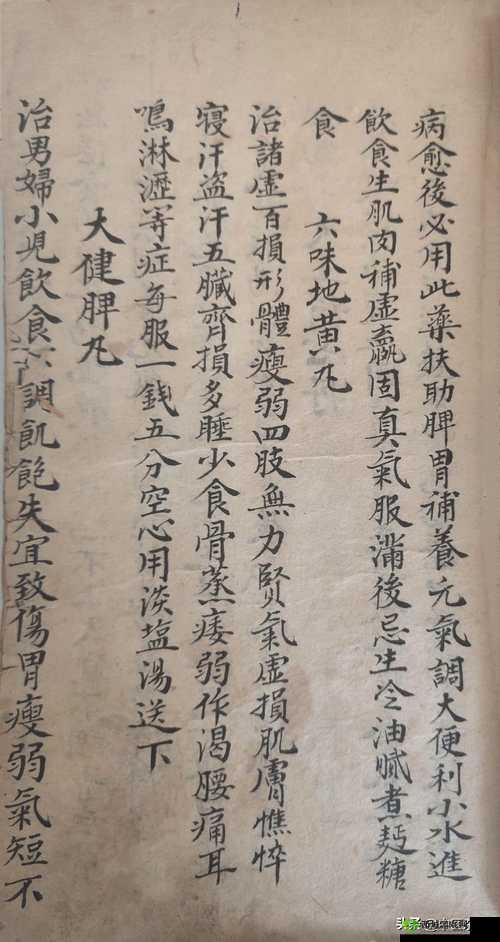 病愈後必用此藥扶助脾胃補養元氣調大便利小水進
飲食生肌肉補虛羸固真氣服滿後忌生冷油膩煮麵糖
食
六味地黃凡
治諸虛百損形體瘦弱四肢無力賢氣虛損肌膚憔悴
寢汗盜汗五臟齊損多睡少食骨蒸痿弱作渴腰痛耳
鳴淋瀝等症每服一錢五分空心用淡塩湯送下
大健脾凡
治男婦小兒飲食不調飢飽失宜致傷胃瘦弱氣短不
头条